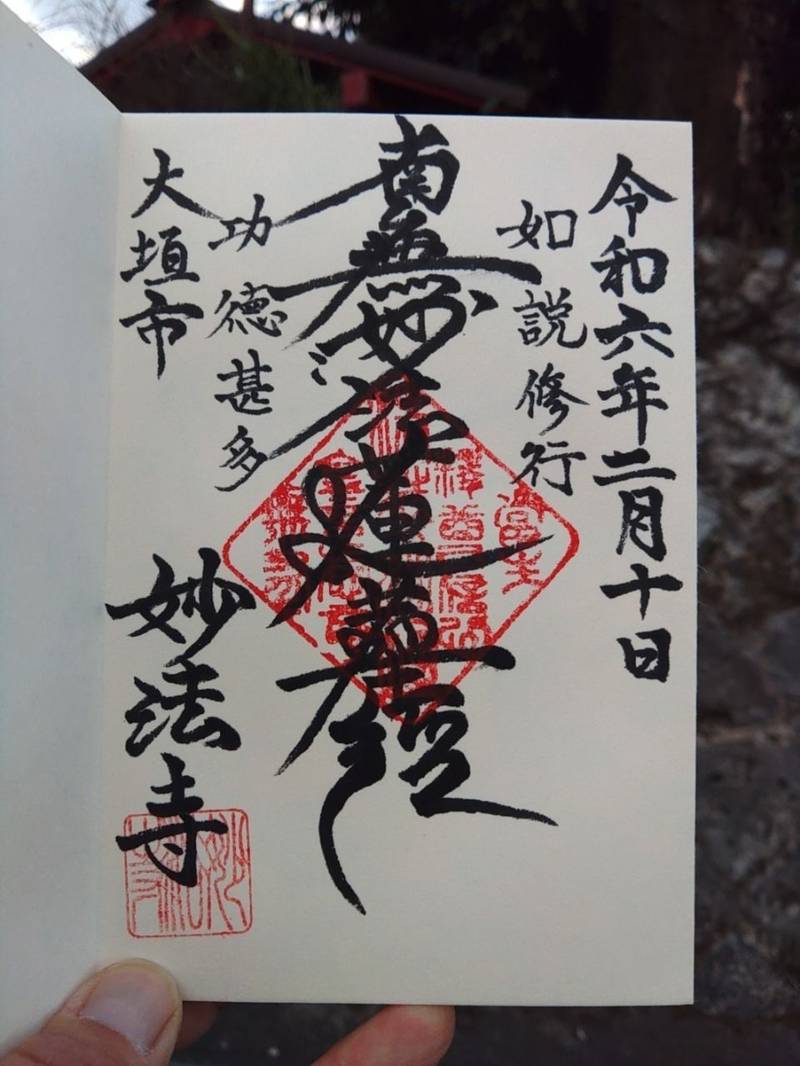 令和六年二月十日
如説修行
南無妙法蓮華経
功徳甚多
大垣市
妙法寺